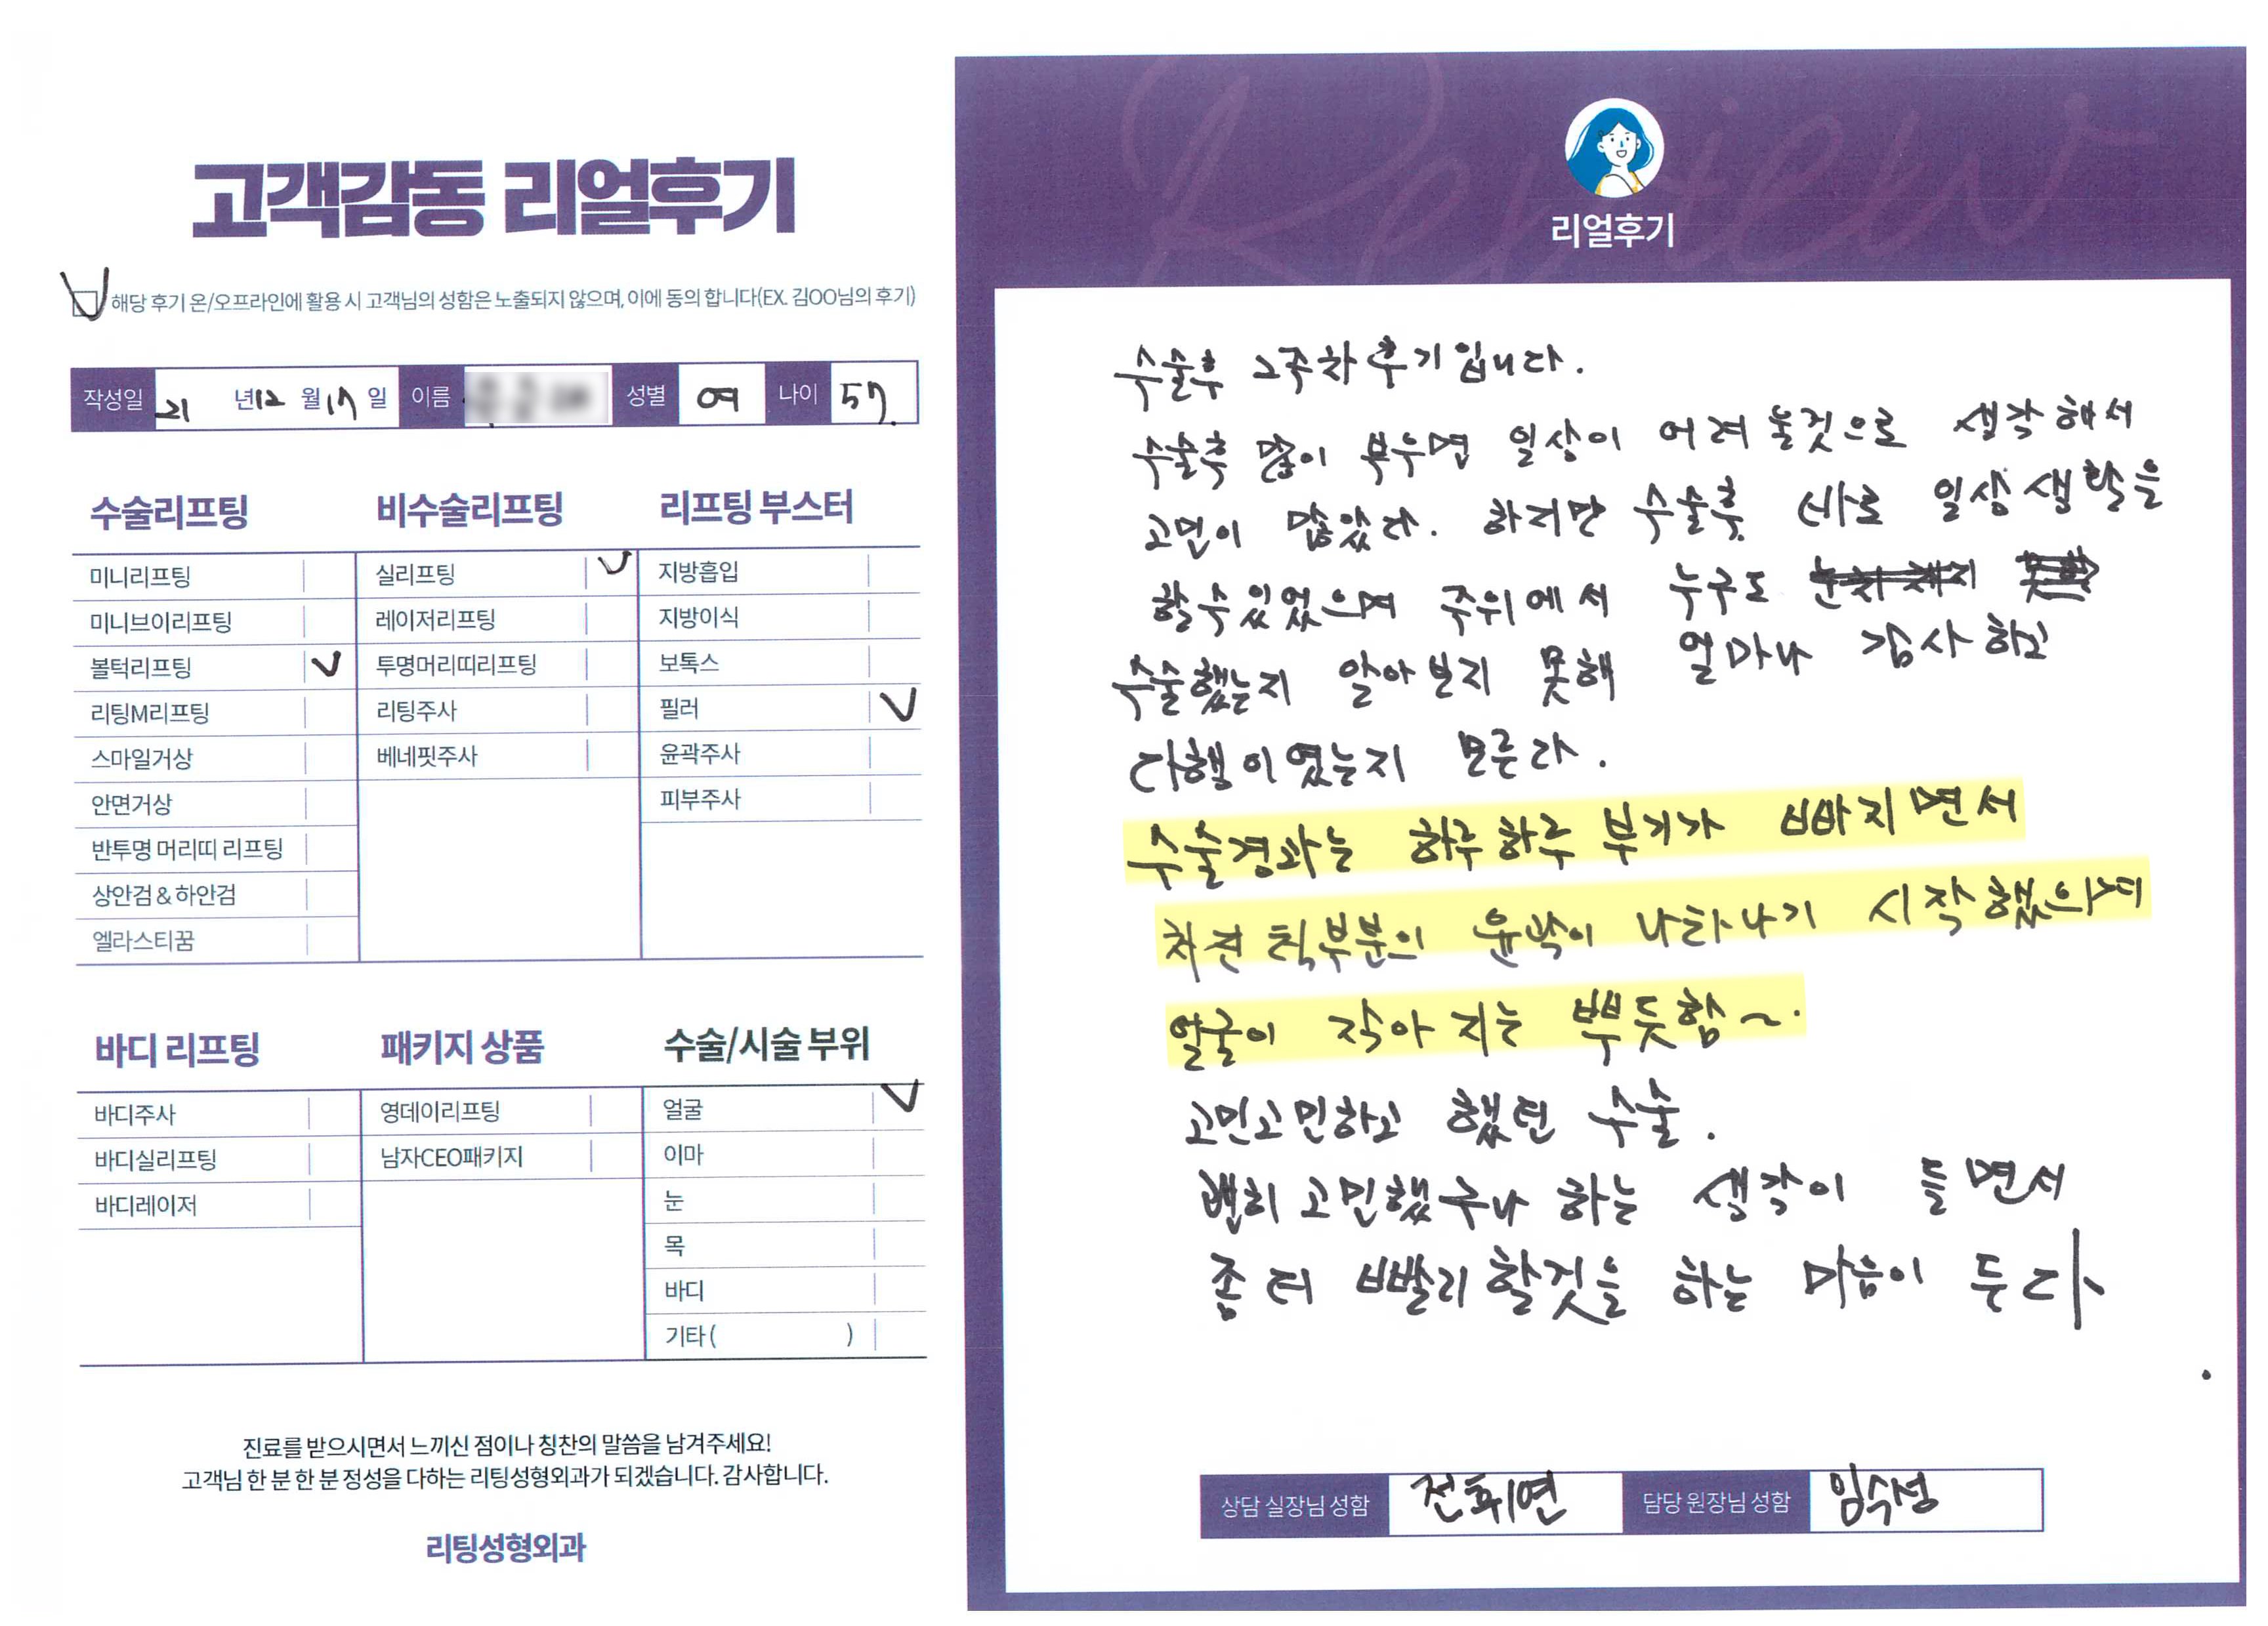 고객감동 리얼후기
해당 후기 온/오프라인에 활용 시 고객님의 성함은 노출되지 않으며, 이에 동의 합니다(EX. 김OO님의 후기)
작성일 21 년 12 월 17 일 이름 성별 여 나이 57.
수술리프팅
미니리프팅
미니브이리프팅
볼턱리프팅
리팅M리프팅
스마일거상
안면거상
반투명 머리띠 리프팅
상안검 & 하안검
엘라스티꿈
비수술리프팅
실리프팅
레이저리프팅
투명머리띠리프팅
리팅주사
베네핏주사
리프팅 부스터
지방흡입
지방이식
보톡스
필러
윤곽주사
피부주사
바디 리프팅
바디주사
바디실리프팅
바디레이저
패키지 상품
영데이리프팅
남자CEO패키지
수술/시술 부위
얼굴
이마
눈
목
바디
기타 ( )
진료를 받으시면서 느끼신 점이나 칭찬의 말씀을 남겨주세요!
고객님 한 분 한 분 정성을 다하는 리팅성형외과가 되겠습니다. 감사합니다.
리팅성형외과
Review
리얼후기
수술후 2주차 후기입니다.
수술후 많이 부우면 일상이 어려울것으로 생각해서
고민이 많았다. 하지만 수술후 바로 일상생활을
할수있었으며 주위에서 누구도
수술했는지 알아보지 못해 얼마나 감사하고
다행이였는지 모른다.
수술경과는 하루하루 부기가 빠지면서
처진 턱부분의 윤곽이 나타나기 시작했으며
얼굴이 작아지는 뿌듯함~.
고민고민하고 했던 수술.
괜히 고민했구나 하는 생각이 들면서
좀 더 빨리 할것을 하는 마음이 든다.
상담 실장님 성함 전휘연 담당 원장님 성함 임수성